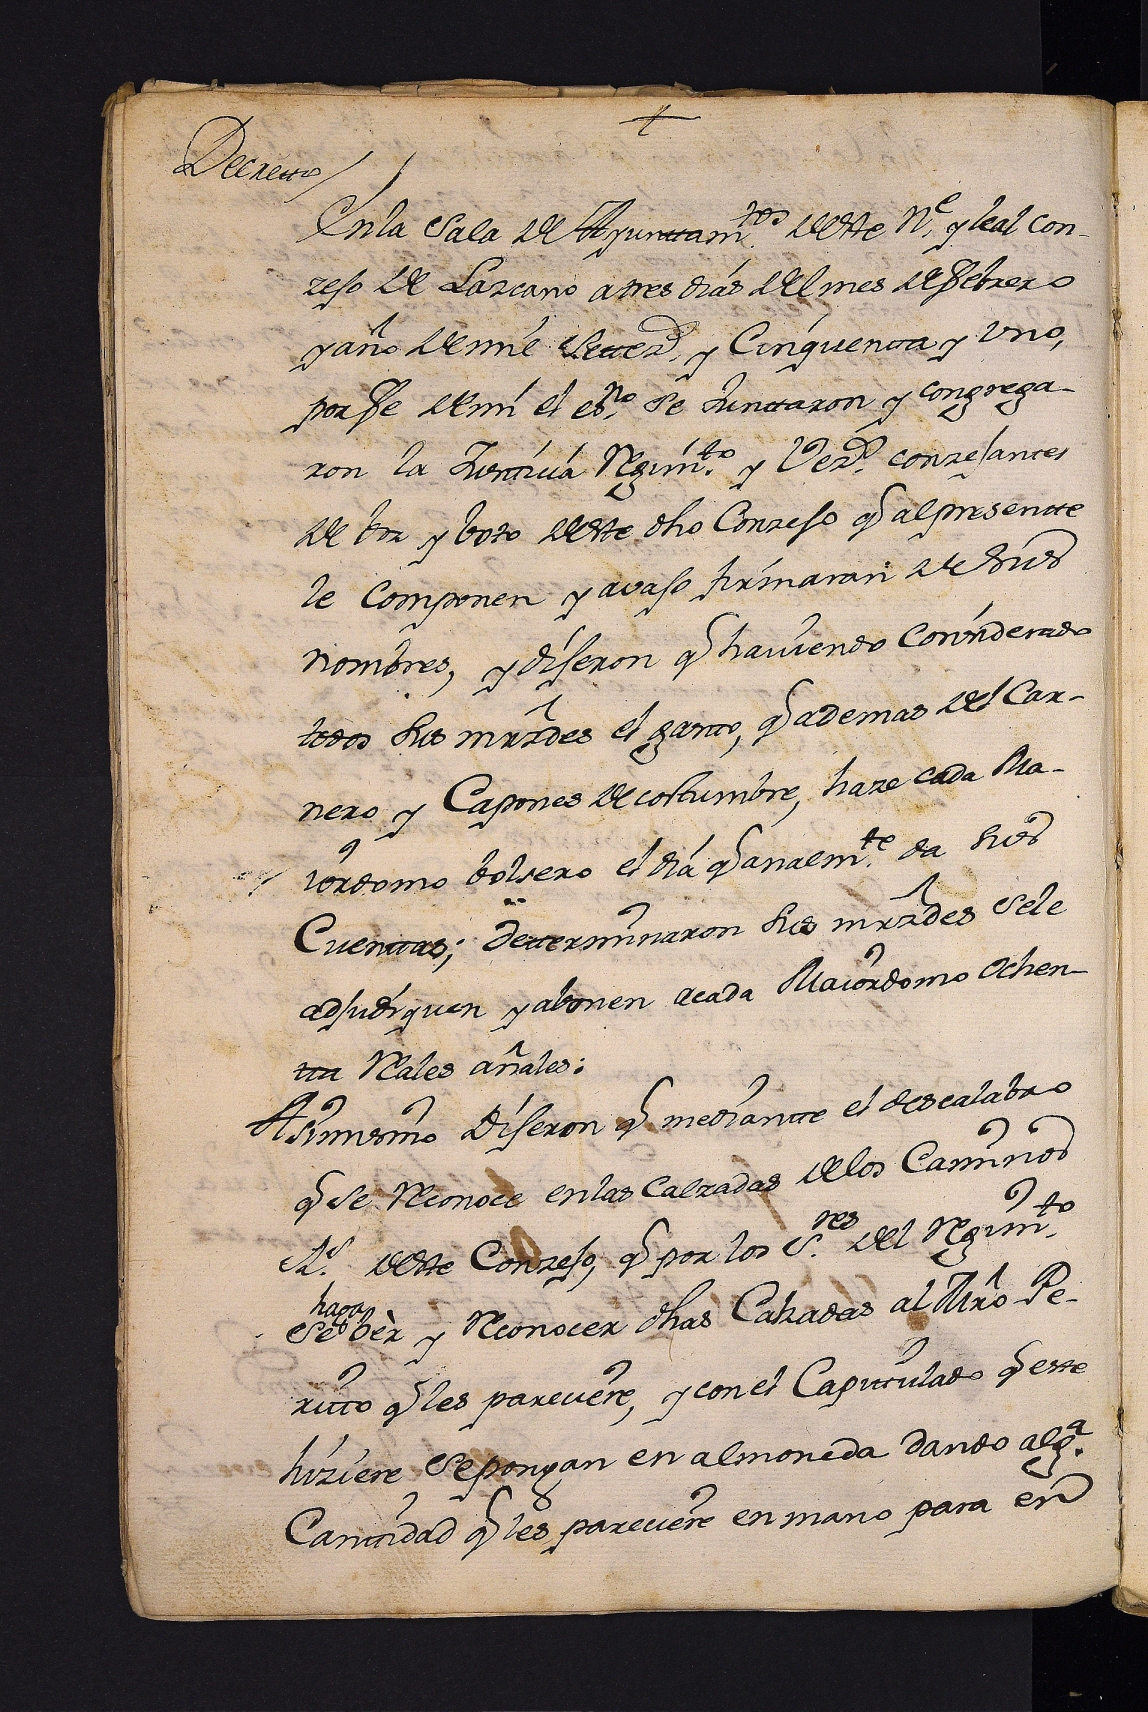 +
Decretto
En la Sala de Ayuntamtos. deste Ne. y leal con-
zejo de Lazcano a tres dias del mes de Febrero
y año de mil Settezs. y Cinquentta y Uno,
por Fe de mi el esno. se Junttaron y congrega-
ron la Justicia Regimto. y Vezs. conzejantes
de boz y boto deste dho Conzejo q al presentte
le Componen y avajo firmaran de sus
nombres, y dijeron q haviendo Considerado
ttodos sus mrzdes el gastto, q ademas del Car-
nero y Capones de costumbre, haze cada Ma-
iordomo bolsero el dia q analmte. da sus
Cuenttas; Detterminaron sus mrzdes se le
adjudiquen y abonen a cada Maiordomo Ochen-
tta Reales añales:
Asimesmo Dijeron q mediantte el descalabro
q se Reconoce en las Calzadas de los Caminos
Rs. deste Conzejo, q por los Sres. del Regimto.
se haga ber y Reconocer dhas Calzadas al Mro Pe-
ritto q les pareciere, y con el Capittulado q estte
hiziere se pongan en almoneda dando alga.
Canttidad q les pareciere en mano para en